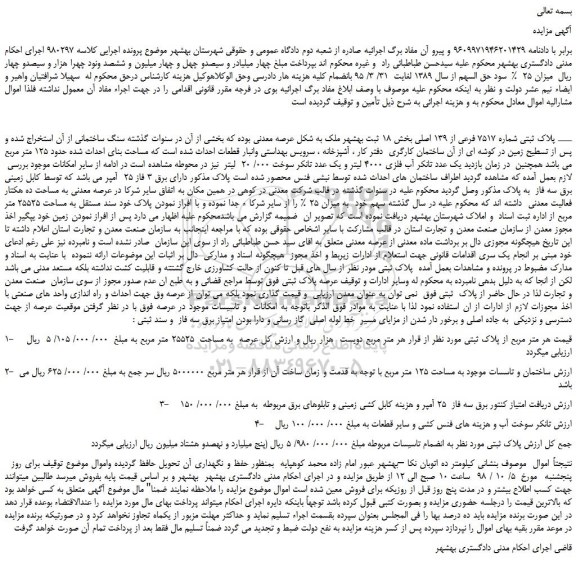 بسمه تعالی
آگهی مزایده
برابر با دادنامه ۹۶۰۹۹۷۱۹۴۶۲۰۱۴۲۹ و پیرو آن مفاد برگ اجرائیه صادره از شعبه دوم دادگاه عمومی و حقوقی شهرستان بهشهر موضوع پرونده اجرایی کلاسه ۹۸۰۲۹۷ اجرای احکام
مدنی دادگستری بهشهر محکوم علیه سیدحسن طباطبائی راد و غیره محکوم اند بپرداخت مبلغ چهار میلیادر و سیصدو چهل و چهار میلیون و ششصد ونود چهرا هزار و سیصدو چهار
ریال میزان ۲۵ ٪ سود حق السهم از سال ۱۳۸۹ لغایت ۳۱/ ۳/ ۹۵ بانضمام کلیه هزینه هار دادرسی وحق الوکلاهوکیل هزینه کارشناس درحق محکوم له سهیلا شرافتیان واهبر و
ایضاء نیم عشر دولت و نظر به اینکه محکوم علیه موصوف با وصف ابلاغ مفاد برگ اجرائیه بوی در فرجه مقرر قانونی اقدامی را در جهت اجراء مفاد آن معمول نداشته فلذا اموال
مشارالیه اموال معادل محکوم به و هزینه اجرائی به شرح ذیل تأمین و توقیف گردیده است
پلاک ثبتی شماره ۷۵۱۷ فرعی از ۱۳۹ اصلی بخش ۱۸ ثبت بهشهر ملک به شکل عرصه معدنی بوده که بخشی از آن در سنوات گذشته سنگ ساختمانی از آن استخراج شده و
پس از تسطیح زمین در گوشه ای از آن ساختمان کارگری دفتر کار ، آشپزخانه ، سرویس بهداستی وانبار قطعات احداث شده است که مساحت بنای احداث شده حدود ۱۲۵ متر مربع
می باشد همچنین در زمان بازدید یک عدد تانکر آب فلزی ۴۰۰۰ لیتر و یک عدد تانکر سوخت ۰۰۰/ ۲۰ لیتر نیز در محوطه مشاهده است در ادامه از سایر امکانات موجود بررسی
لازم بعمل آمده که مشاهده گردید اطراف ساختمان های احداث شده توسط نبشی فنس محصور شده است پلاک مذکور دارای برق ۳ فاز ۲۵ آمپر می باشد که توسط کابل زمینی
برق سه فاز به پلاک مذکور وصل گردید محکوم علیه در سنوات گذشته در قالب شرکت معدنی در کوهی در همین مکان به اتفاق سایر شرکا در عرصه معدنی به مساحت ده هکتار
فعالیت معدنی داشته اند که محکوم علیه در سال گذشته سهم خود به میزان ۲۵ ٪ را از سایر شرکاء جدا نموده و با افراز نمودن پلاک خود سند مستقل به مساحت ۲۵۵۲۵ متر
مربع از اداره ثبت اسناد و املاک شهرستان بهشهر دریافت نموده است که تصویر آن ضمیمه گزارش می باشدمحکوم علیه اظهار می دارد پس از افراز نمودن زمین خود پیگیر اخذ
مجوز معدن از سازمان صنعت معدن و تجارت استان در قالب مشارکت با سایر اشخاص حقوقی بوده که با مراجعه اینجانب به سازمان صنعت معدن و تجارت استان اعلام داشته تا
این تاریخ هیچگونه مجوزی دال بر برداشت ماده معدنی از عرصه معدنی متعلق به آقای سید حسن طباطبائی راد از سوی این سازمان صادر نشده است و نامبرده نیز علی رغم ادعای
خود مبنی بر انجام یک سری اقدامات قانونی جهت استعلام از ادارات زیربط و اخذ مجوز هیچگونه اسناد و مدارکی دال بر اثبات این موضوعات ارائه ننموده با عنایت به اسناد و
مدارک مضبوط در پرونده و مشاهدات بعمل آمده پلاک ثبتی مودر نظر از سال های قبل تا کنون از حالت کشاورزی خارج گشتنه و قابلیت کشت نداشته بلکه مستعد مدنی می باشد
لکن از آنجا که به دلیل بدهی نامبرده به محکوم له وسایر ادارات و توقیف عرصه پلاک ثبتی فوق توسط مراجع قضائی و به طبع ان عدم صدور مجوز از سوی سازمان صنعت معدن
و تجارت لذا در حال حاضر از پلاک ثبتی فوق نمی توان به عنوان معدن ارزیابی و قیمت گذاری نمود بلکه می توان از عرصه وق جهت احداث و راه اندازی واحد های صنعتی با
اخذ مجوزات لازم از ادارات از ان استفاده نمود لذا با عنایت به موادر فوق الذکر باتوجه به امکانات و تاسیسات موجود در عرصه فوق با در نظر گرفتن موقعیت عرصه از جهت
دسترسی و نزدیکی به جاده اصلی و برخور دار شدن از مزایای مسیر خط لوله اصلی گاز رسانی و دارا بودن امتیاز برق سه فاز و سند ثبتی :
قیمت هر متر مربع از پلاک ثبتی مورد نظر از قرار هر متر مربع دویست هزار ریال و ارزش کل عرصه به مساحت ۲۵۵۲۵ متر مربع به مبلغ ۰۰۰/ ۰۰۰/ ۱۰۵/ ۵ ریال -۱
ارزیابی میگردد
ارزش ساختمان و تاسسات موجود به مساحت ۱۲۵ متر مربع با توجه به قدمت و زمان ساخت آن از قرار هر متر مربع ۵۰۰۰۰۰۰ ریال سر جمع به مبلغ ۰۰۰/ ۰۰۰/ ۶۲۵ ریال می -۲
باشد
ارزش دریافت امتیاز کنتور برق سه فاز ۲۵ آمپر و هزینه کابل کشی زمینی و تابلوهای برق مربوطه به مبلغ ۰۰۰/ ۰۰۰/ ۱۵۰ -۳
ارزش تانکر سوخت آب و هزینه های فنس کشی و سایر قطعات به مبلغ ۰۰۰/ ۰۰۰/ ۱۰۰ ریال -۴
جمع کل ارزش پلاک ثبتی مورد نظر به انضمام تاسیسات مربوطه مبلغ ۰۰۰/ ۰۰۰/ ۹۸۰/ ۵ ریال (پنج میلیارد و نهصدو هشتاد میلیون ریال ارزیابی میگردد
نتیجتا اموال موصوف بنشانی کیلومتر ده اتوبان نکا –بهشهر عبور امام زاده محمد کوهپایه بمنظور حفظ و نگهداری آن تحویل حافظ گردیده واموال موضوع توقیف برای روز
پنجشنبه مورخ ۵/ ۱۰/ ۹۸ ساعت ۱۰ صبح الی ۱۲ از طریق مزایده و در اجرای احکام مدنی دادگستری بهشهر بهشهر و بر اساس قیمت پایه بفروش میرسد طالبین میتوانند
جهت کسب اطلاع بیشتر و در مدت پنج روز قبل از روزیکه برای فروش معین شده است اموال موضوع مزایده را ملاحظه نمایند ضمنا" مال موضوع آگهی متعلق به کسی خواهد بود
که بالاترین قیمت را درجلسه حضوری مزایده و بصورت کتبی قبول کرده باشد توجهاً باینکه دایره اجرای احکام میتواند پرداخت بهای مال مورد مزایده را عندالاقتضاء بوعده قرار دهد
در این صورت برنده مزایده باید ده درصد بها را فی المجلس بعنوان سپرده بقسمت اجراء تسلیم نماید و حداکثر مهلت مزبور از یکماه تجاوز نخواهد کرد و در صورتیکه برنده مزایده
در موعد مقرر بقیه بهای اموال را نپردازد سپرده پس از کسر هزینه مزایده به نفع دولت ضبط و تجدید می گردد ضمناً تسلیم مال فقط بعد از پرداخت تمام آن صورت خواهد گرفت
قاضی اجرای احکام مدنی دادگستری بهشهر